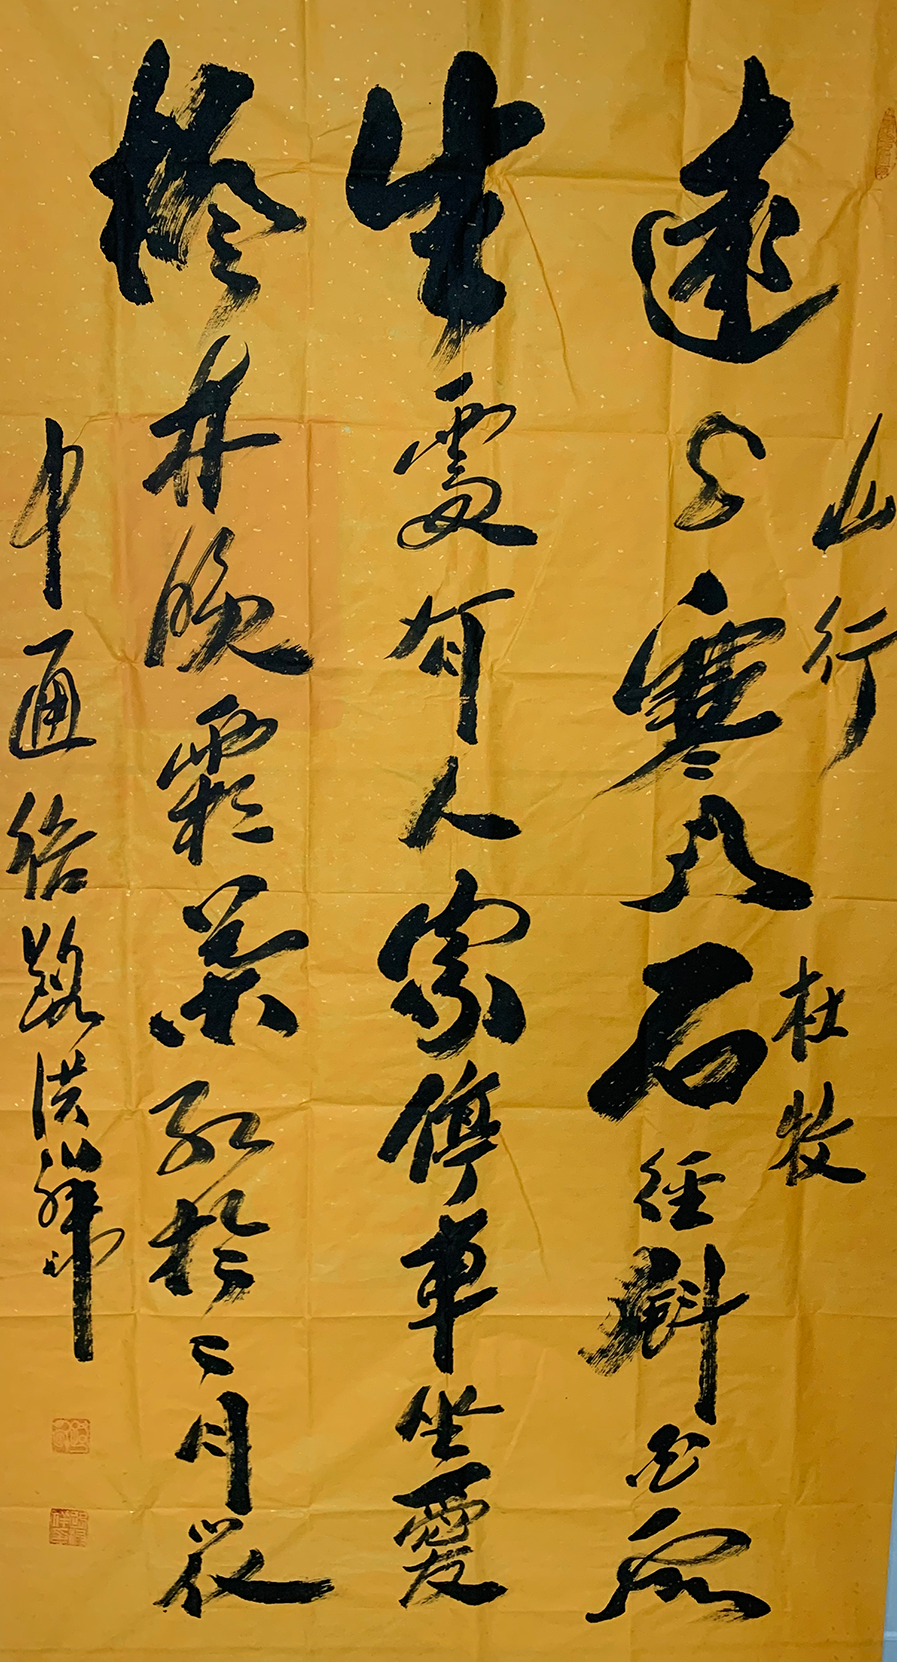 山行 杜牧
遠上寒山石徑斜白雲
生處有人家停車坐愛
楓林晚霜葉紅於二月花
中通 路洪祥